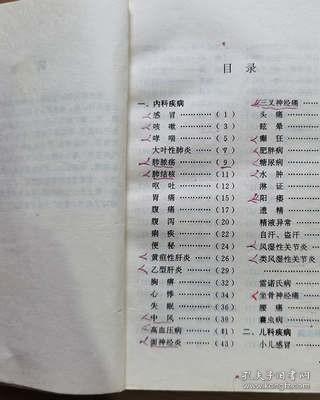 目 录
一、内科疾病
感冒 ………… (1)
咳嗽 ………… (3)
哮喘 ………… (5)
大叶性肺炎 ………… (7)
肺脓疡 ………… (9)
肺结核 ………… (11)
呕吐 ………… (12)
胃痛 ………… (14)
腹痛 ………… (18)
腹泻 ………… (20)
痢疾 ………… (22)
便秘 ………… (24)
黄疸性肝炎 ………… (26)
乙型肝炎 ………… (29)
胸痹 ………… (32)
心悸 ………… (34)
失眠 ………… (36)
中风 ………… (39)
高血压病 ………… (41)
面神经炎 ………… (43)
三叉神经痛
头痛 …………
眩晕 …………
癫狂 …………
肥胖病
糖尿病
水肿 …………
淋证 …………
阳痿 …………
遗精 …………
精液异常
自汗、盗汗
风湿性关节炎
类风湿性关节炎
雷诺氏病
坐骨神经痛
腰痛 …………
囊虫病
二、儿科疾病
小儿感冒
孔夫子旧书网